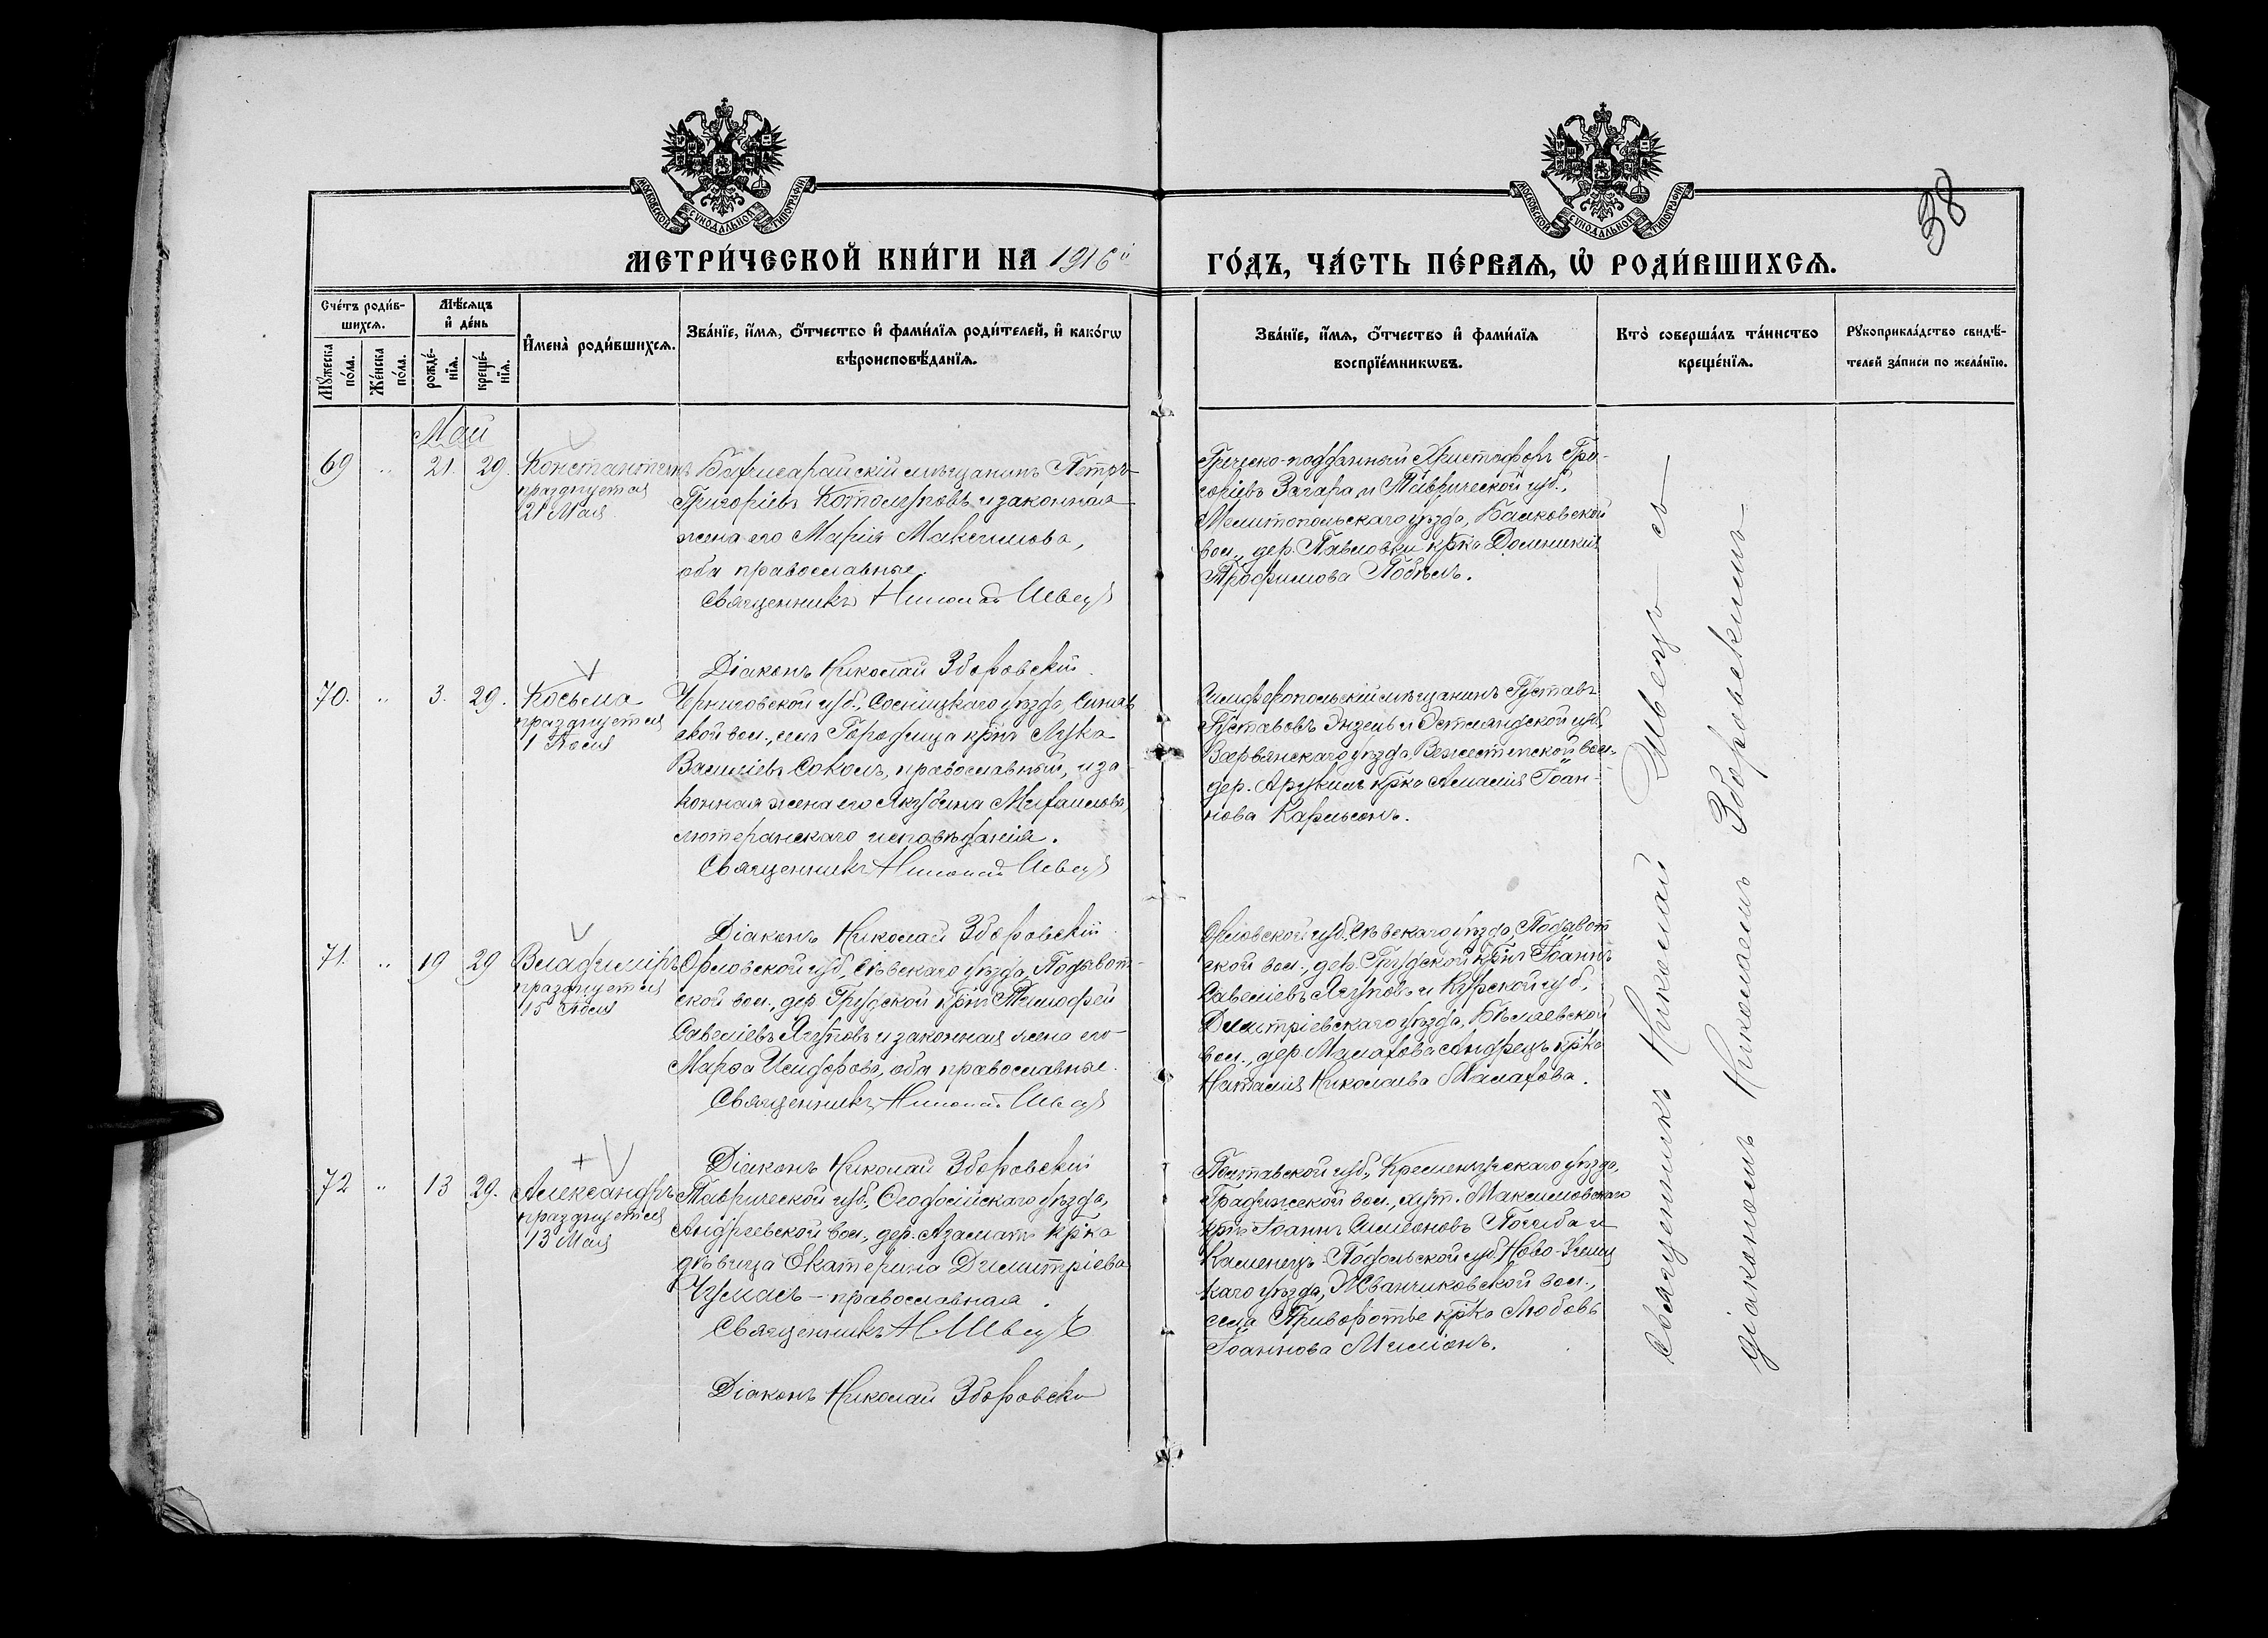 МОСКОВСКОЙ СѴНОДАЛЬНОЙ ТИПОГРАФІИ
МОСКОВСКОЙ СѴНОДАЛЬНОЙ ТИПОГРАФІИ
38
МЕТРИ́ЧЕСКОЙ КНИ́ГИ НА 1916й
ГО́ДЪ, ЧА́СТЬ ПЕ́РВАЯ, Ѡ҆ РОДИ́ВШИХСЯ.
Сче́тъ роди́в-
шихся.
Мѣ́сяцъ
и҆ де́нь
Мꙋ́жеска
по́ла.
Же́нска
по́ла.
рожде́-
нїя.
креще́-
нїя.
И҆мена̀ роди́вшихся.
Зва́нїе, и҆́мя, ѻ҆́тчество и҆ фами́лїя роди́телей, и҆ како́гѡ
вѣроисповѣ́данїя.
Зва́нїе, и҆́мя, ѻ҆́тчество и҆ фами́лїя
воспрїе́мникѡвъ.
Кто̀ соверша́лъ та́инство
креще́нїя.
Рꙋкоприкла́дство свидѣ́-
телей за́писи по жела́нїю.
Май
69 " 21. 29. Константинъ
празднуется
21 Мая
Бахчисарайскій мѣщанинъ Петръ
Григоріевъ Котолуповъ и законная
жена его Марія Максимова,
оба православные.
Священникъ Николай Швецъ
Діаконъ Николай Зборовскій
Греческо-подданный Христофоръ Гри-
горіевъ Загара и Таврической губ.,
Мелитопольскаго уѣзда, Балковской
вол., дер. Павловки кр-ка Домникія
Трофимова
70. " 3. 29. Косьма
празднуется
1 Іюля
Черниговской губ., Сосницкаго уѣзда, Синяв
ской вол., села Городища кр-нъ Лука
Василіевъ Соколъ, православный, и за
конная жена его Якубина Михаилова,
лютеранскаго исповѣданія.
Священникъ Николай Швецъ
Діаконъ Николай Зборовскій
Симферопольскій мѣщанинъ Густавъ
Густавовъ Энзель и Эстляндской губ.
уѣзда, вол.
дер. кр-ка Амалія Іоан-
нова Карльсонъ.
71. " 19 29 Владиміръ
празднуется
15 Іюля
Орловской губ., Сѣвскаго уѣзда, Подывот-
ской вол., дер. Грудской кр-нъ Тимофей
Савеліевъ Ягуповъ и законная жена его
Марѳа Исидорова, оба православные.
Священникъ Николай Швецъ
Діаконъ Николай Зборовскій
Орловской губ. Сѣвскаго уѣзда, Подывот
ской вол., дер. Грудской кр-нъ Іоаннъ
Савеліевъ Ягуповъ и Курской губ.,
Димитріевскаго уѣзда, Бѣляевской
вол., дер. Малахова кр-ка
Наталія Николаева Малахова.
72 " 13 29. Александръ
празднуется
13 Мая
Таврической губ., Ѳеодосійскаго уѣзда,
Андреевской вол., дер. Азаматъ кр-ка
дѣвица Екатерина Димитріева
Чумасъ – православная.
Священникъ Н. Швецъ
Діаконъ Николай Зборовскій
Полтавской губ., Кременчугскаго уѣзда,
Градижской вол., хут. Максимовскаго
кр-нъ Іоаннъ Симеоновъ Погиба и
Каменецъ-Подольской губ., Ново-Ушиц
каго уѣзда, Жванчиковской вол.,
села Приворотье кр-ка Любовь
Іоаннова
Священникъ Николай Швецъ – съ –
діакономъ Николаемъ Зборовскимъ